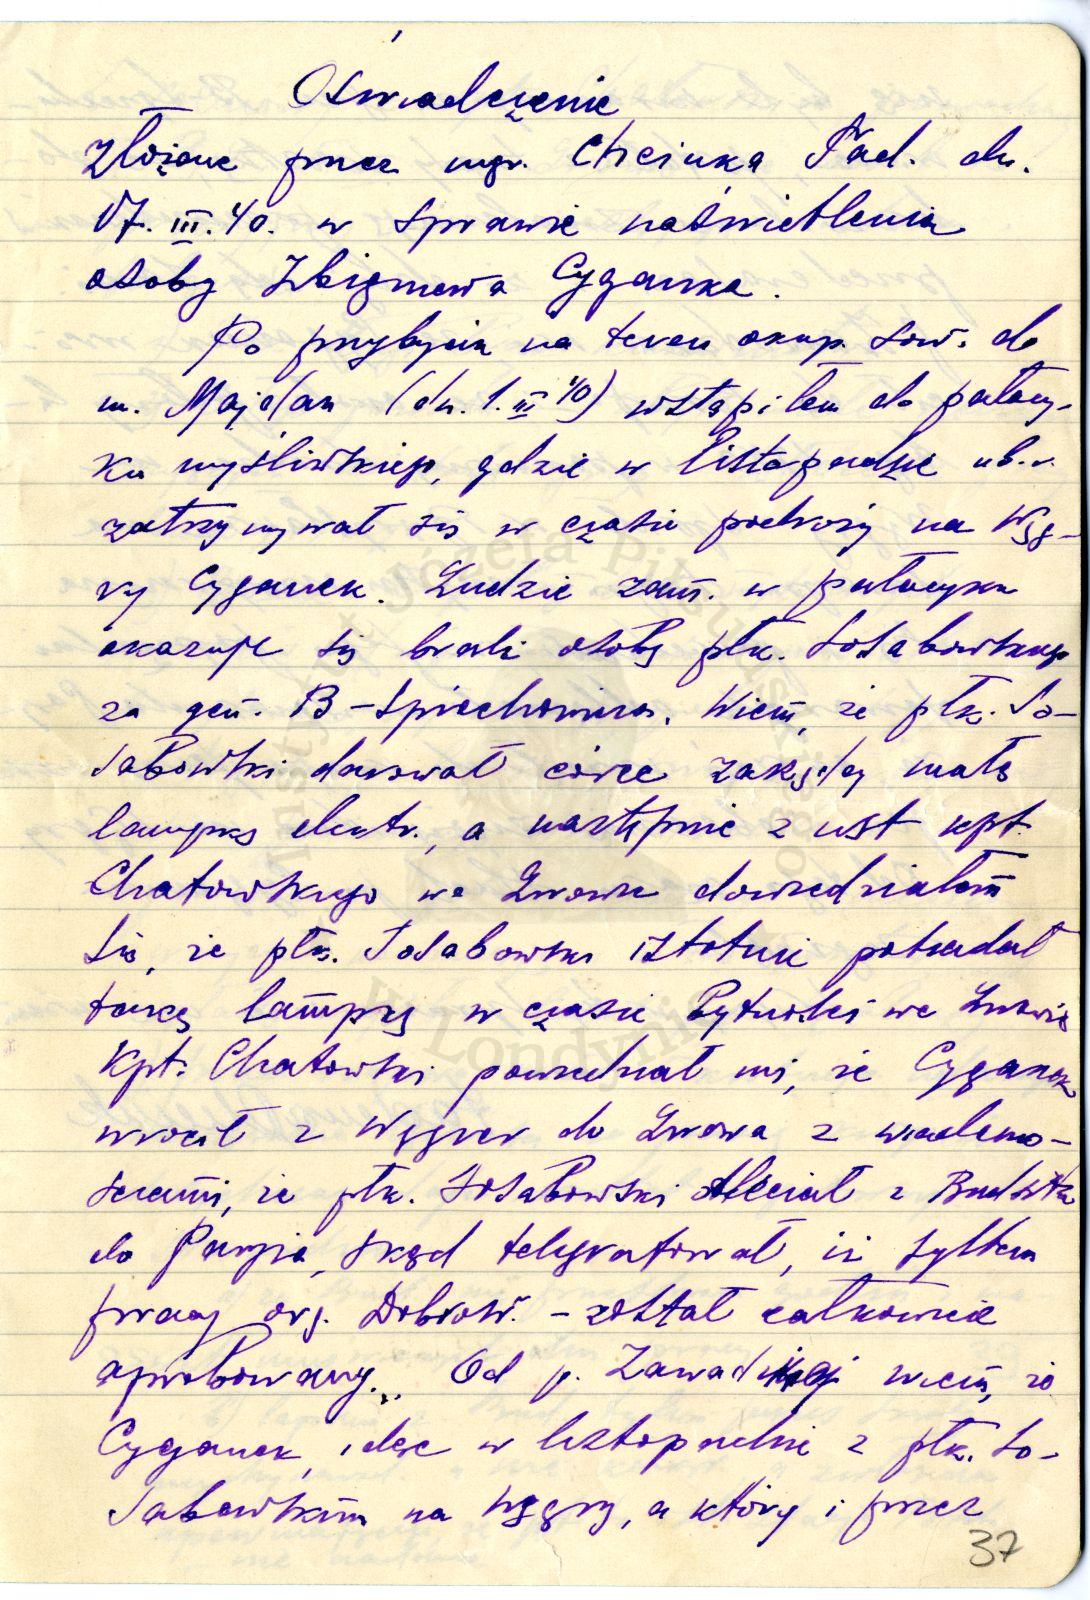 Oświadczenie
złożone przez mgr. Chciuka Tad. dn.
17. III. 40. w sprawie naświetlenia
osoby Zbigniewa Cyganka.
Po przybyciu na teren okup. sow. do
m. Majdan (dn. 1. III 40) wstąpiłem do pałacy-
ku myśliwskiego, gdzie w listopadzie ub. r.
zatrzymywał się w czasie podróży na Węg-
ry Cyganek. Ludzie zam. w pałacyku
okazuje się brali osobę płk. Sosabowskiego
za gen. B-Spiechowicza. Wiem, że płk. So-
sabowski darował córce małą
lampkę elektr., a następnie z ust kpt.
Chatowskiego we Lwowie dowiedziałem
się, że płk. Sosabowski istotnie posiadał
taką lampkę w czasie bytności we Lwowie
Kpt. Chatowski powiedział mi, że Cyganek
wrócił z Węgier do Lwowa z wiadomo-
ściami, że płk. Sosabowski odleciał z Budapesztu
do Paryża, skąd telegrafował, iż system
pracy org. Dobrow. – został całkowicie
aprobowany... Od p. Zawadzkiej wiem, że
Cyganek, idąc w listopadzie z płk. So-
sabowskim na Węgry, a który i przez
37
Instytut Józefa Piłsudskiego
w Londynie